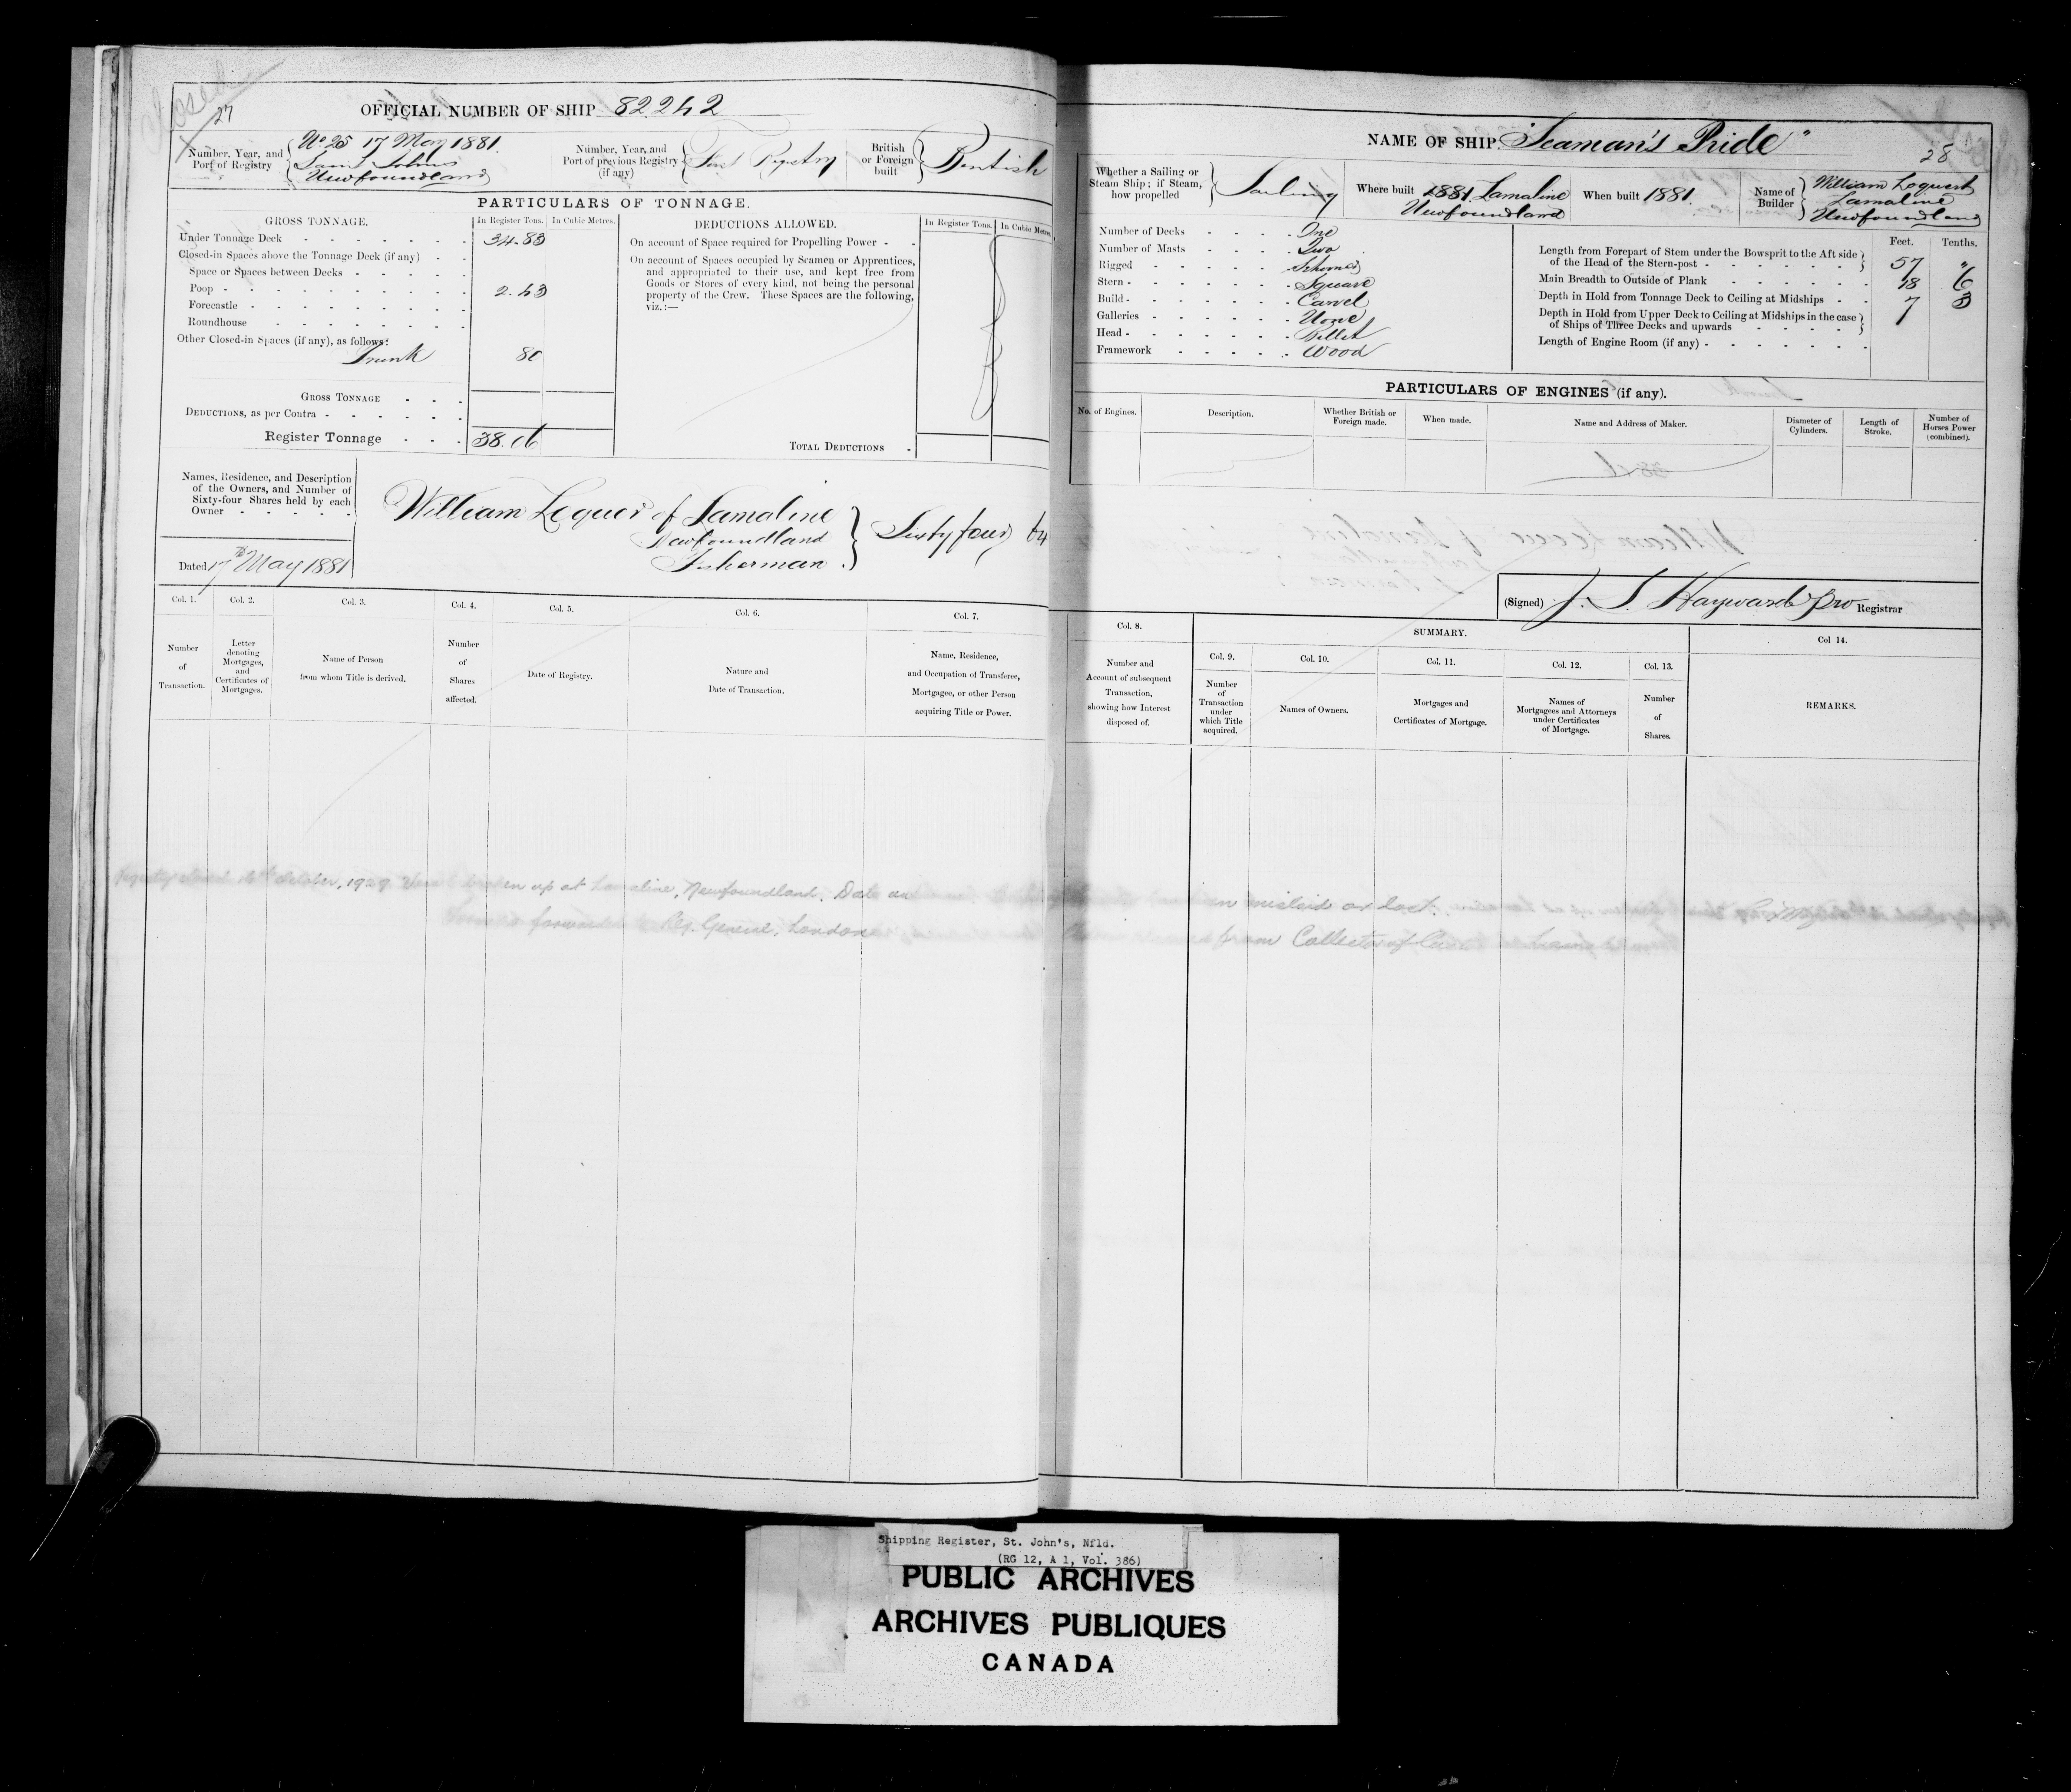 Closed
27
OFFICIAL NUMBER OF SHIP 82242
Number, Year, and
Port of Registry
No 25 17 May 1881
Saint Johns
Newfoundland
Number, Year, and
Port of previous Registry
(if any)
First Registry
British
or Foreign
built
British
PARTICULARS OF TONNAGE.
GROSS TONNAGE.
In Register Tons. In Cubic Metres.
Under Tonnage Deck 34.83
Closed-in Spaces above the Tonnage Deck (if any)
Space or Spaces between Decks
Poop 2.43
Forecastle
Roundhouse
Other Closed-in Spaces (if any), as follows:
Trunk 80
GROSS TONNAGE
DEDUCTIONS, as per Contra
Register Tonnage 38.06
DEDUCTIONS ALLOWED.
In Register Tons. In Cubic Metres.
On account of Space required for Propelling Power
On account of Spaces occupied by Seamen or Apprentices,
and appropriated to their use, and kept free from
Goods or Stores of every kind, not being the personal
property of the Crew. These Spaces are the following,
viz.:—
TOTAL DEDUCTIONS
Names, Residence, and Description
of the Owners, and Number of
Sixty-four Shares held by each
Owner
William Loquer of Lamaline
Newfoundland
Fisherman
Sixty four 64
Dated 17th May 1881
Col. 1. Col. 2. Col. 3. Col. 4. Col. 5. Col. 6. Col. 7.
Number
of
Transaction.
Letter
denoting
Mortgages,
and
Certificates of
Mortgages.
Name of Person
from whom Title is derived.
Number
of
Shares
affected.
Date of Registry.
Nature and
Date of Transaction.
Name, Residence,
and Occupation of Transferee,
Mortgagee, or other Person
acquiring Title or Power.
Registry closed 16th October, 1929 Vessel broken up at Lamaline, Newfoundland. Date
forwarded to Reg. General, London
NAME OF SHIP. "Seaman's Pride"
28
Whether a Sailing or
Steam Ship; if Steam,
how propelled
Sailing
Where built 1881 Lamaline
Newfoundland
When built 1881
Name of
Builder
William Loquert
Lamaline
Newfoundland
Number of Decks One
Number of Masts Two
Rigged Schooner
Stern Square
Build Carvel
Galleries None
Head Billet
Framework Wood
Feet. Tenths.
Length from Forepart of Stem under the Bowsprit to the Aft side
of the Head of the Stern-post 57 "
Main Breadth to Outside of Plank 18 6
Depth in Hold from Tonnage Deck to Ceiling at Midships 7 3
Depth in Hold from Upper Deck to Ceiling at Midships in the case
of Ships of Three Decks and upwards
Length of Engine Room (if any)
PARTICULARS OF ENGINES (if any).
No. of Engines.
Description.
Whether British or
Foreign made.
When made.
Name and Address of Maker.
Diameter of
Cylinders.
Length of
Stroke.
Number of
Horses Power
(combined).
(Signed) J. S. Hayward pro Registrar
Col. 8.
Number and
Account of subsequent
Transaction,
showing how Interest
disposed of.
SUMMARY.
Col. 9. Col. 10. Col. 11. Col. 12. Col. 13.
Number
of
Transaction
under
which Title
acquired.
Names of Owners.
Mortgages and
Certificates of Mortgage.
Names of
Mortgagees and Attorneys
under Certificates
of Mortgage.
Number
of
Shares.
Col 14.
REMARKS.
mislaid or lost.
from Collector of
Shipping Register, St. John's, Nfld.
(RG 12, A 1, Vol. 386)
PUBLIC ARCHIVES
ARCHIVES PUBLIQUES
CANADA